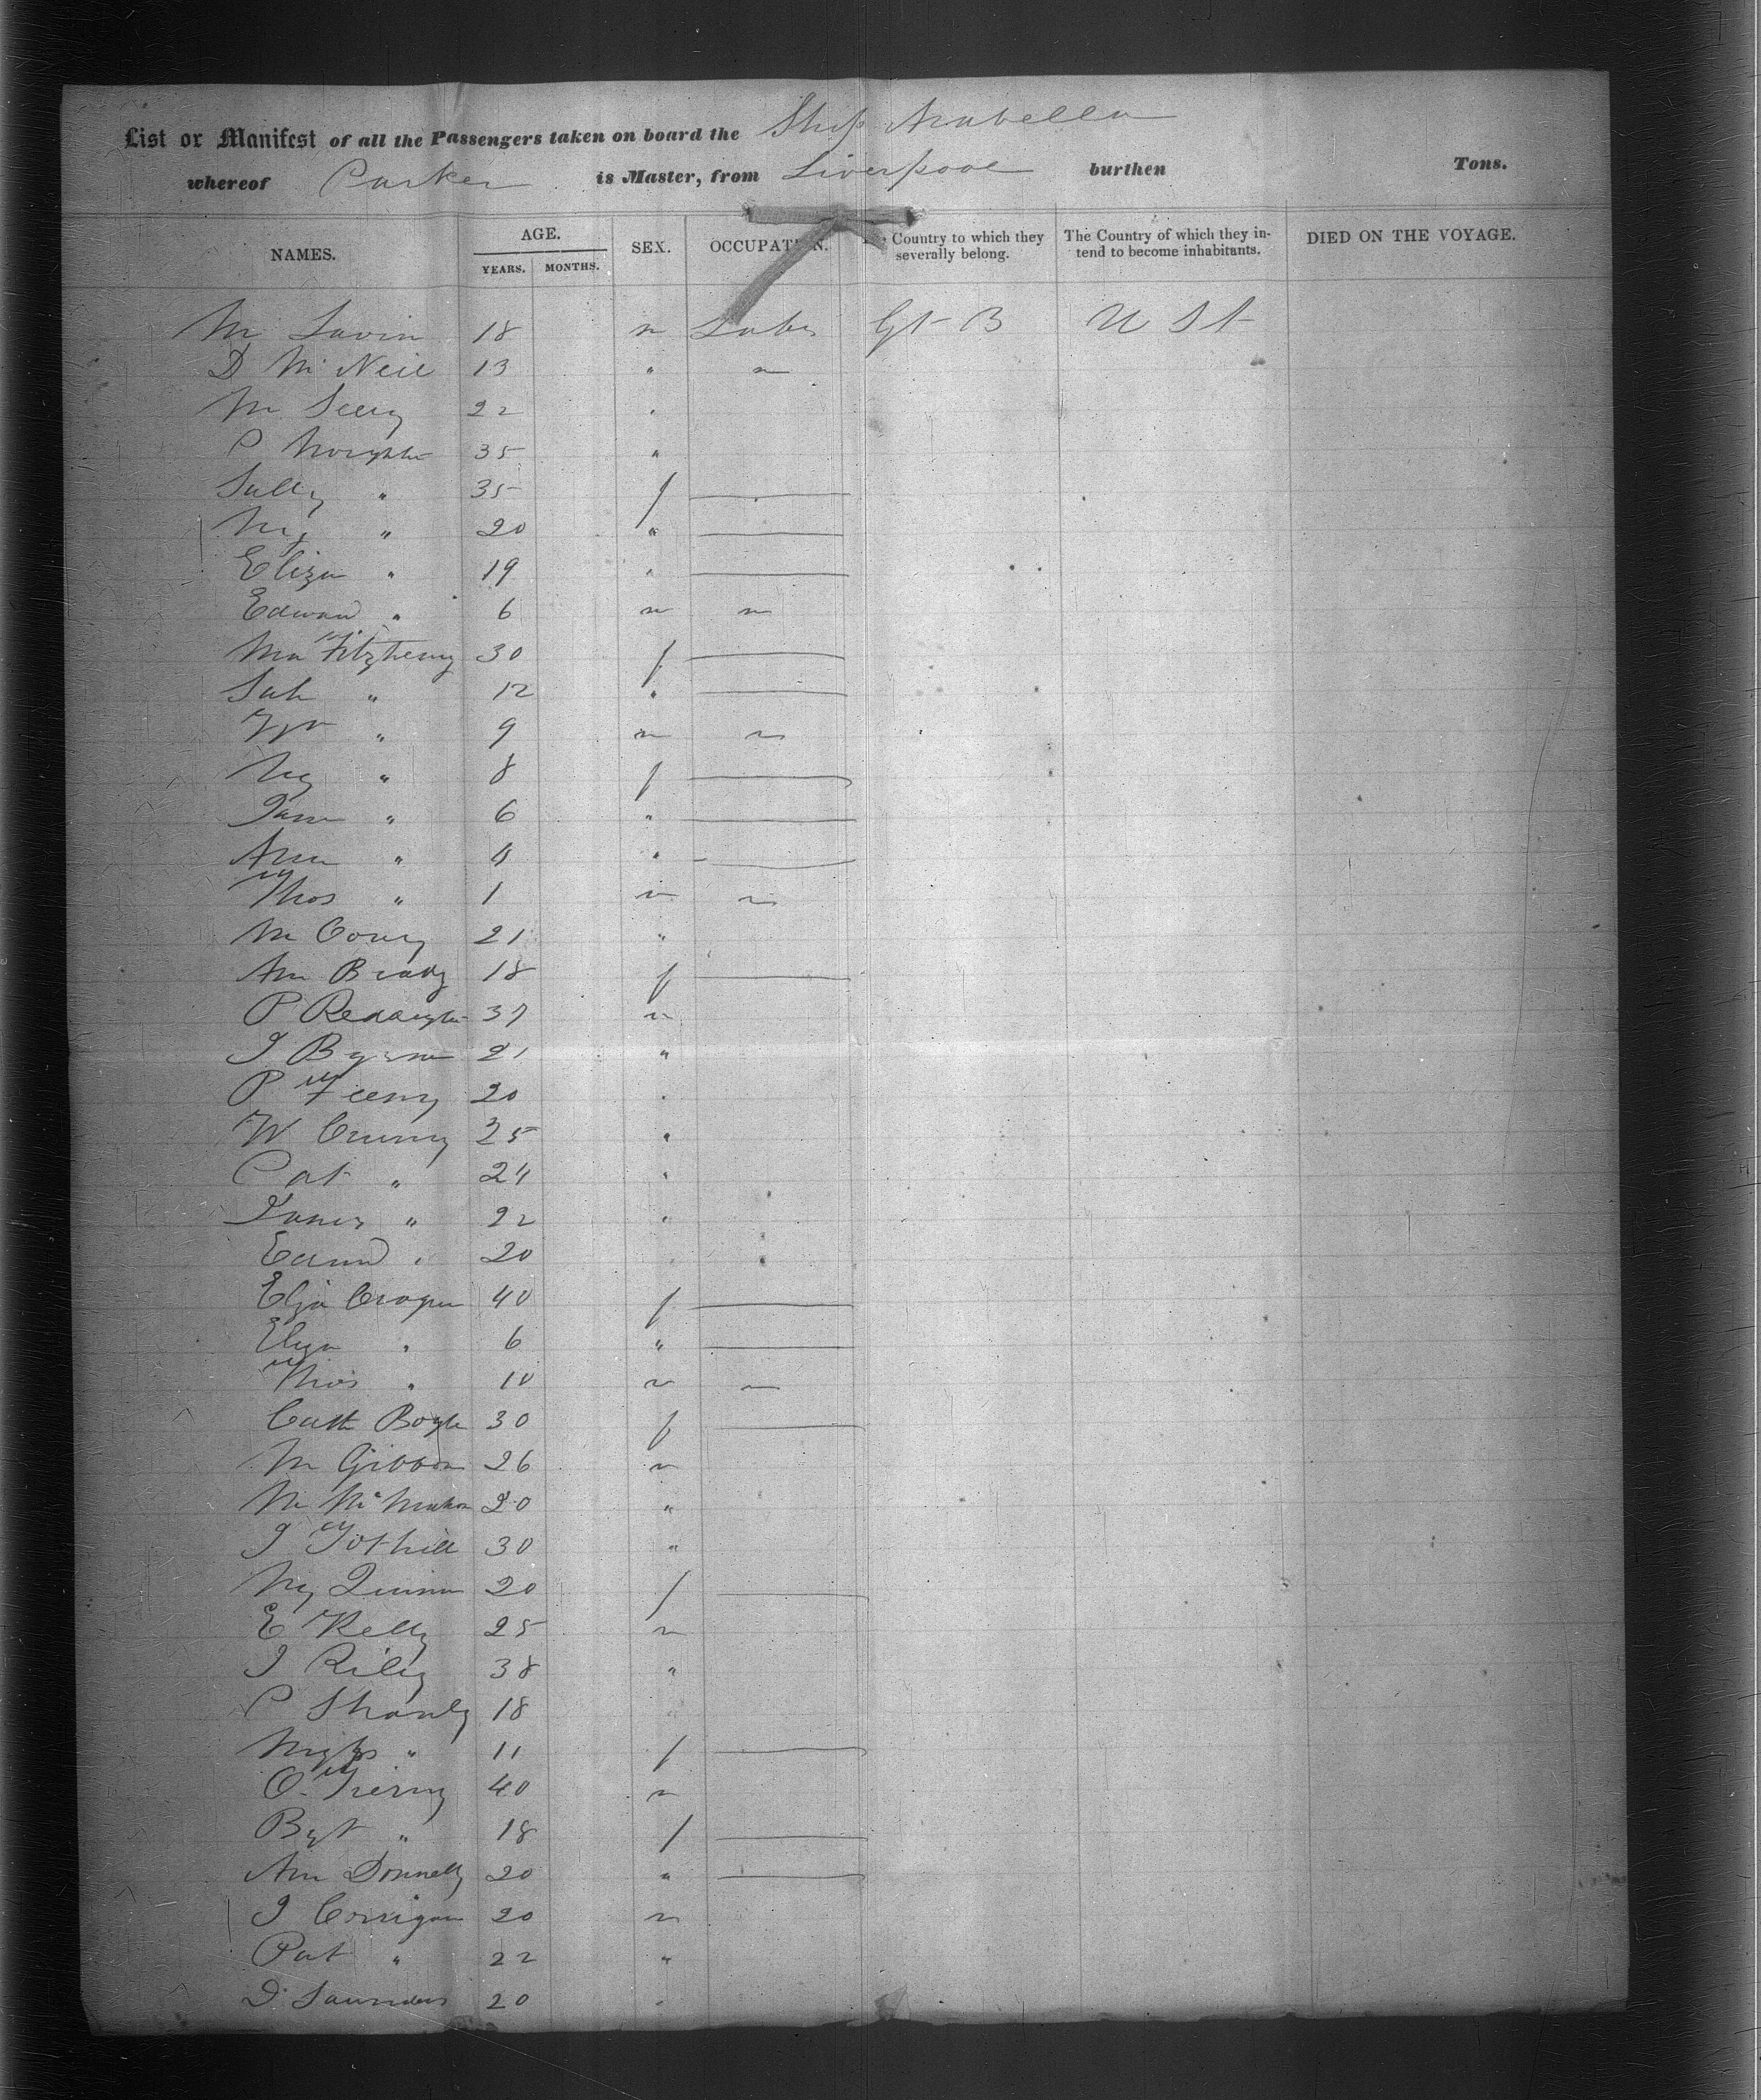 List or Manifest of all the Passengers taken on board the Ship Arabella
whereof Parker is Master, from Liverpool burthen Tons.
NAMES. AGE. YEARS. MONTHS. SEX. OCCUPATION. The Country to which they severally belong. The Country of which they intend to become inhabitants. DIED ON THE VOYAGE.
M Lavin 18 m Labr Gt B U St
D McNeil 13 " "
M 22 "
P 35 "
Sally " 35 f
My " 20 "
Eliza " 19 "
Edward " 6 m "
Fitzhenry 30 f
Sah " 12 "
" 9 m "
My " 8 f
Jane " 6 "
Ann " 4 "
Thos " 1 m "
M 21 "
Ann Brady 18 f
P 37 m
J Byrne 21 "
P Feeny 20 "
W 25 "
Pat " 24 "
James " 22 "
Edmd " 20 "
Eliza 40 f
Eliza " 6 "
Thos " 10 m "
Cath Boyle 30 f
M Gibbon 26 m
M McMahon 20 "
J Tothill 30 "
My Quinn 20 f
E Kelly 25 m
J Riley 38 "
P Shanly 18
" 11 f
O Tierny 40 m
Bgt " 18 f
Ann Donnelly 20 "
J Corrigan 20 m
Pat " 22 "
D Saunders 20 "